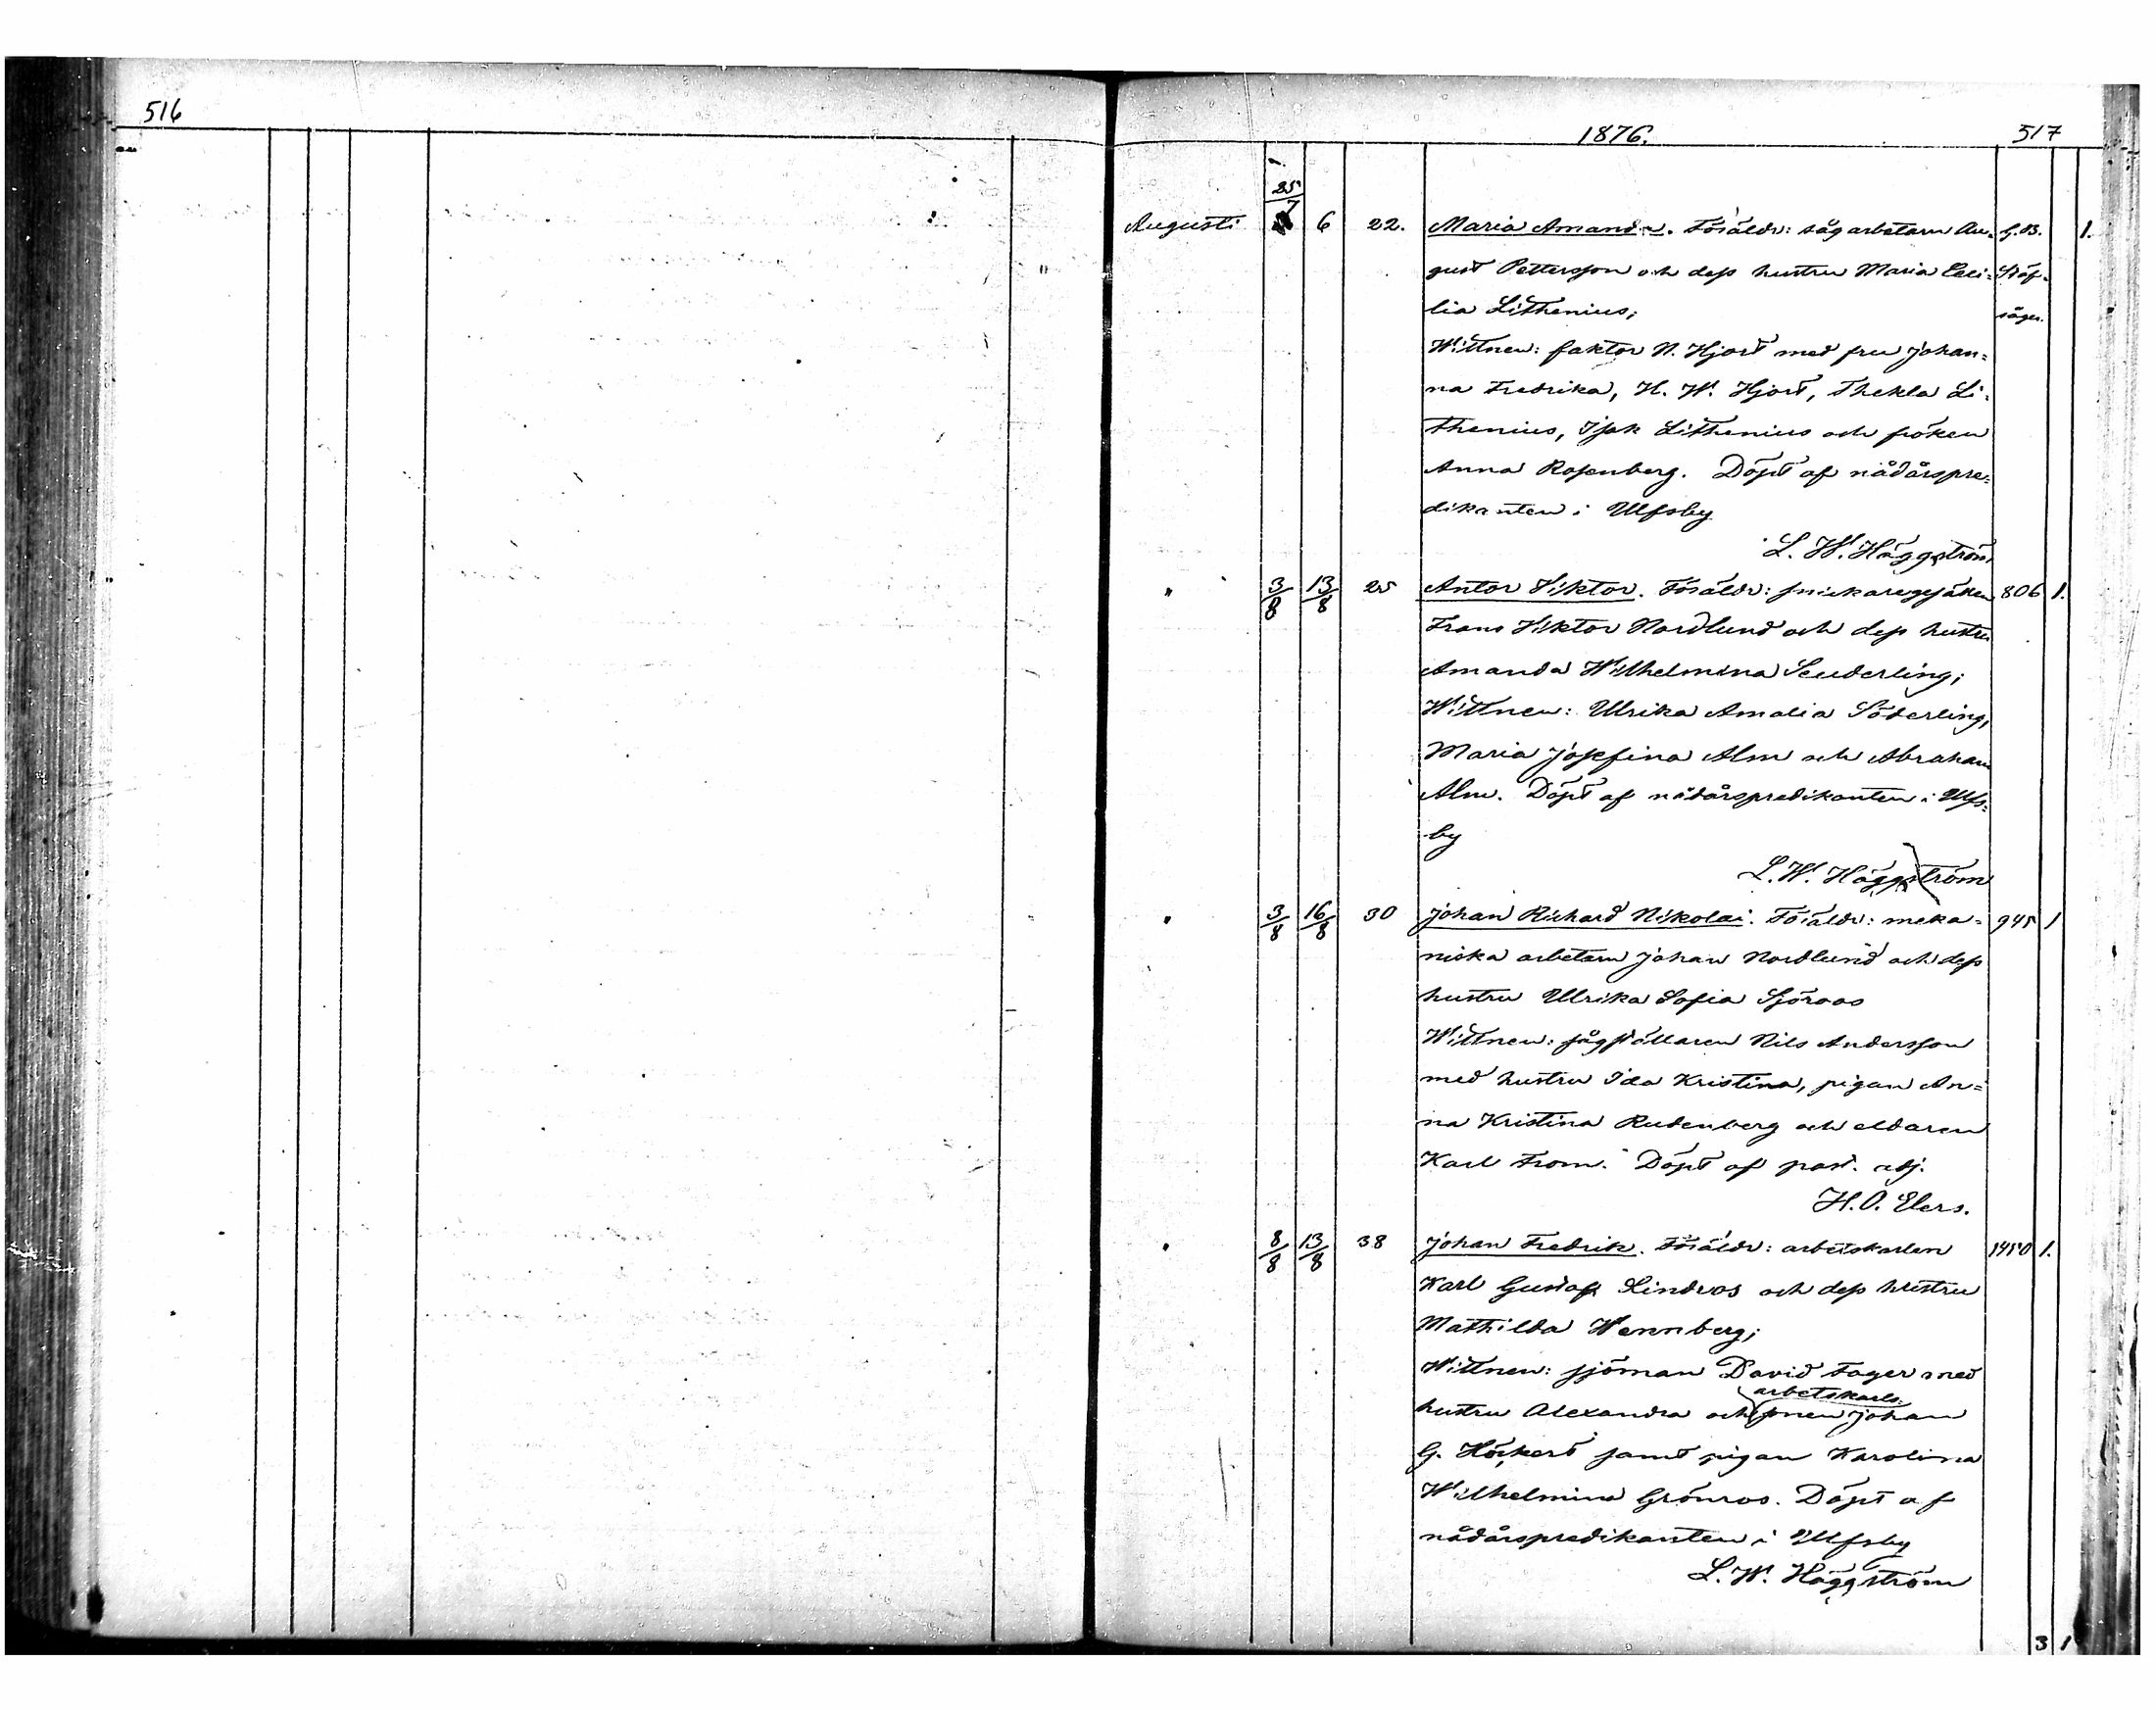 516
1876. 517
Augusti 25/7 6 22. Maria Amanda. Föräldr: sågarbetaren Au- G.B. 1.
gust Pettersson och dess hustru Maria Ceci=
lia Lithenius;
Wittnen: faktor N. Hjort med fru Johan=
na Fredrika, H. W. Hjort, Thekla Li-
thenius, Isak Lithenius och fröken
Anna Rosenberg. Döpt af nådårspre=
dikanten i Ulfsby
L. W. Häggström
" 3/8 13/8 25 Antor Viktor. Föräldr: snickaregesällen 806 1.
Frans Viktor Nordlund och dess hustru
Amanda Wilhelmina Seuderling;
Wittnen: Ulrika Amalia Söderling,
Maria Josefina Alm och Abraham
Alm. Döpt af nådårspredikanten i Ulfs=
by
L. W. Häggström
" 3/8 16/8 30 Johan Richard Nikolai. Föräldr: meka= 945 1
niska arbetaren Johan Nordlund och dess
hustru Ulrika Sofia Sjöroos
Wittnen: sågställaren Nils Andersson
med hustru Ida Kristina, pigan An=
na Kristina Rudenberg och eldaren
Karl From. Döpt af past. adj.
H. O. Elers.
" 8/8 13/8 38 Johan Fredrik. Föräldr: arbetskarlen 1450 1.
Karl Gustaf Lindros och dess hustru
Mathilda Wennberg;
Wittnen: sjöman David Fager med
arbetskarls-
hustru Alexandra och sonen Johan
G. Höckert samt pigan Karolina
Wilhelmina Grönroos. Döpt af
nådårspredikanten i Ulfsby
L. W. Häggström
3 1